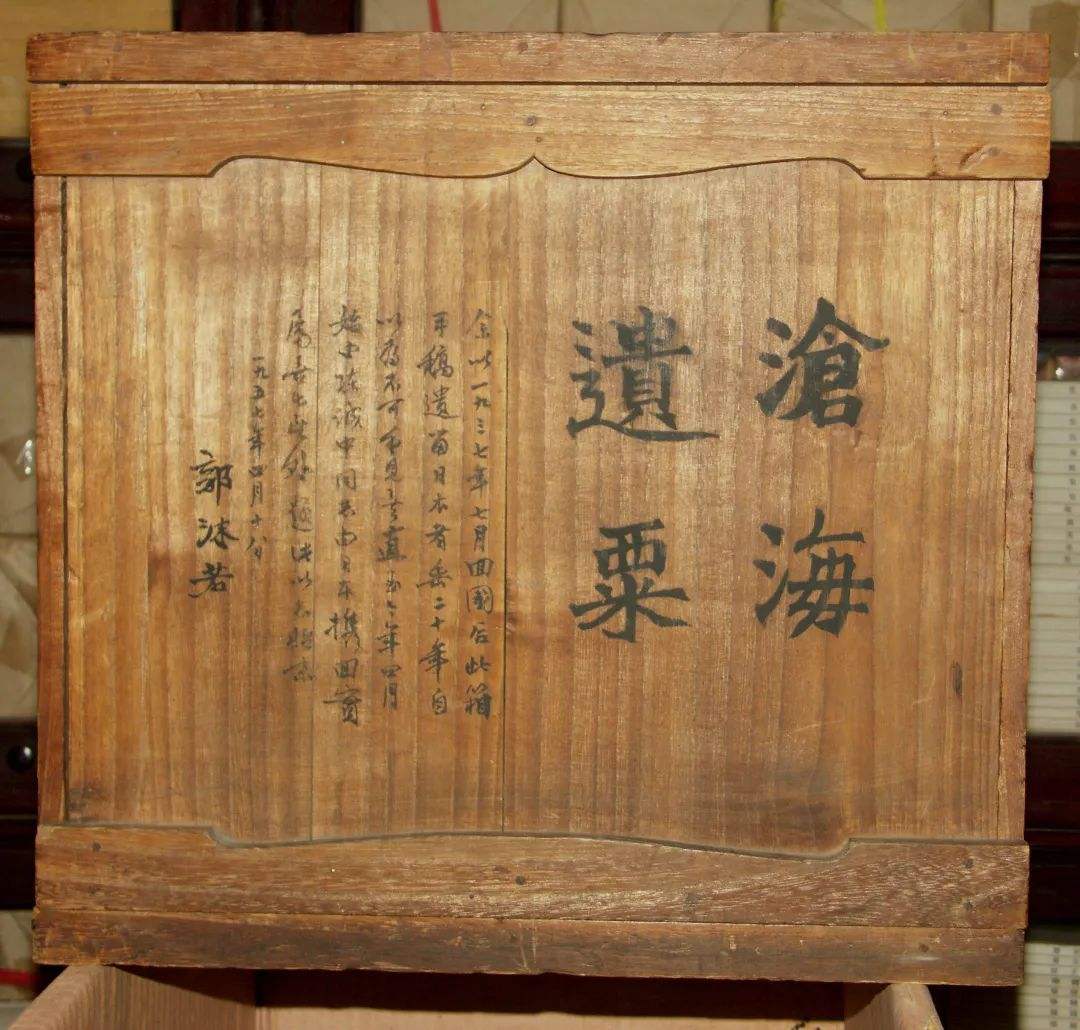 滄海
遺粟
余以一九三七年七月回國后此箱
手稿遺留日本者無二十年自
以为不可再見矣直至今年四月
始由 誠中同志由日本携回實
屬 此外 以志
一九五七年四月十八日
郭沫若